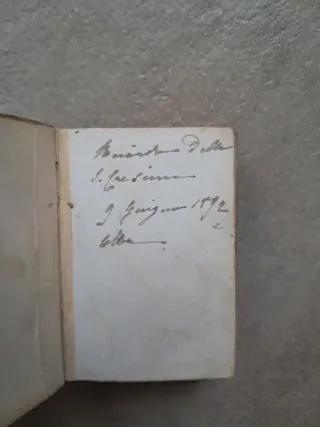 Ricordo Della
S. Cresima
9 Giugno 1892
Alba